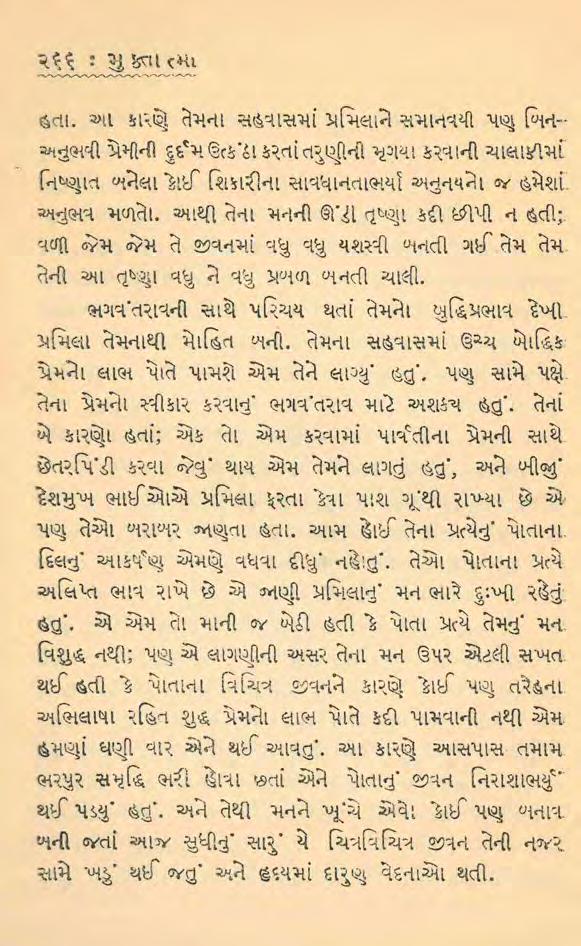 ૨૬૬ : મુક્તાત્મા
હતા. આ કારણે તેમના સહવાસમાં પ્રમિલાને સમાનવયી પણ બિન-
અનુભવી પ્રેમીની દુર્દમ ઉત્કંઠા કરતાં તરુણીની મૃગયા કરવાની ચાલાકીમાં
નિષ્ણાત બનેલા કોઈ શિકારીના સાવધાનતાભર્યા અનુનયનો જ હમેશાં
અનુભવ મળતો. આથી તેના મનની ઊંડી તૃષ્ણા કદી છીપી ન હતી;
વળી જેમ જેમ તે જીવનમાં વધુ વધુ યશસ્વી બનતી ગઈ તેમ તેમ
તેની આ તૃષ્ણા વધુ ને વધુ પ્રબળ બનતી ચાલી.
ભગવંતરાવની સાથે પરિચય થતાં તેમનો બુદ્ધિપ્રભાવ દેખી
પ્રમિલા તેમનાથી મોહિત બની. તેમના સહવાસમાં ઉચ્ચ બૌદ્ધિક
પ્રેમનો લાભ પોતે પામશે એમ તેને લાગ્યું હતું. પણ સામે પક્ષે
તેના પ્રેમનો સ્વીકાર કરવાનું ભગવંતરાવ માટે અશક્ય હતું. તેનાં
બે કારણો હતાં; એક તો એમ કરવામાં પાર્વતીના પ્રેમની સાથે
છેતરપિંડી કરવા જેવું થાય એમ તેમને લાગતું હતું, અને બીજું
દેશમુખ ભાઈઓએ પ્રમિલા ફરતા કેવા પાશ ગૂંથી રાખ્યા છે એ
પણ તેઓ બરાબર જાણતા હતા. આમ હોઈ તેના પ્રત્યેનું પોતાના
દિલનું આકર્ષણ એમણે વધવા દીધું નહોતું. તેઓ પોતાના પ્રત્યે
અલિપ્ત ભાવ રાખે છે એ જાણી પ્રમિલાનું મન ભારે દુઃખી રહેતું
હતું. એ એમ તો માની જ બેઠી હતી કે પોતા પ્રત્યે તેમનું મન
વિશુદ્ધ નથી; પણ એ લાગણીની અસર તેના મન ઉપર એટલી સખત
થઈ હતી કે પોતાના વિચિત્ર જીવનને કારણે કોઈ પણ તરેહના
અભિલાષા રહિત શુદ્ધ પ્રેમનો લાભ પોતે કદી પામવાની નથી એમ
હમણાં ઘણી વાર એને થઈ આવતું. આ કારણે આસપાસ તમામ
ભરપુર સમૃદ્ધિ ભરી હોવા છતાં એને પોતાનું જીવન નિરાશાભર્યું
થઈ પડ્યું હતું. અને તેથી મનને ખૂંચે એવો કોઈ પણ બનાવ
બની જતાં આજ સુધીનું સારું યે ચિત્રવિચિત્ર જીવન તેની નજર
સામે ખડું થઈ જતું અને હૃદયમાં દારુણ વેદનાઓ થતી.